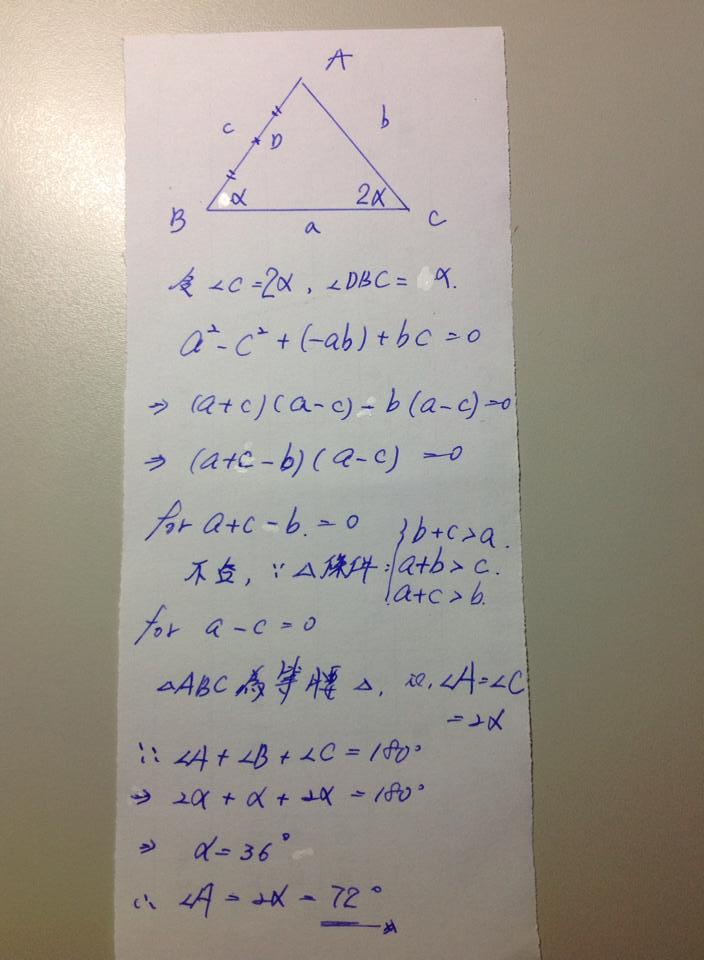 A
c
D
b
B
α
2α
C
a
∠C=2α, ∠DBC= α.
a²-c²+(-ab)+bc=0
⇒ (a+c)(a-c)-b(a-c)=0
⇒ (a+c-b)(a-c) =0
for a+c-b.=0 { b+c>a.
不合, ∵ △條件: a+b>c.
a+c>b.
for a-c=0
△ABC 為等腰△, ie, ∠A=∠C
=2α
∵ ∠A+∠B+∠C=180°
⇒ 2α+α+2α=180°
⇒ α=36°
∴ ∠A=2α=72°